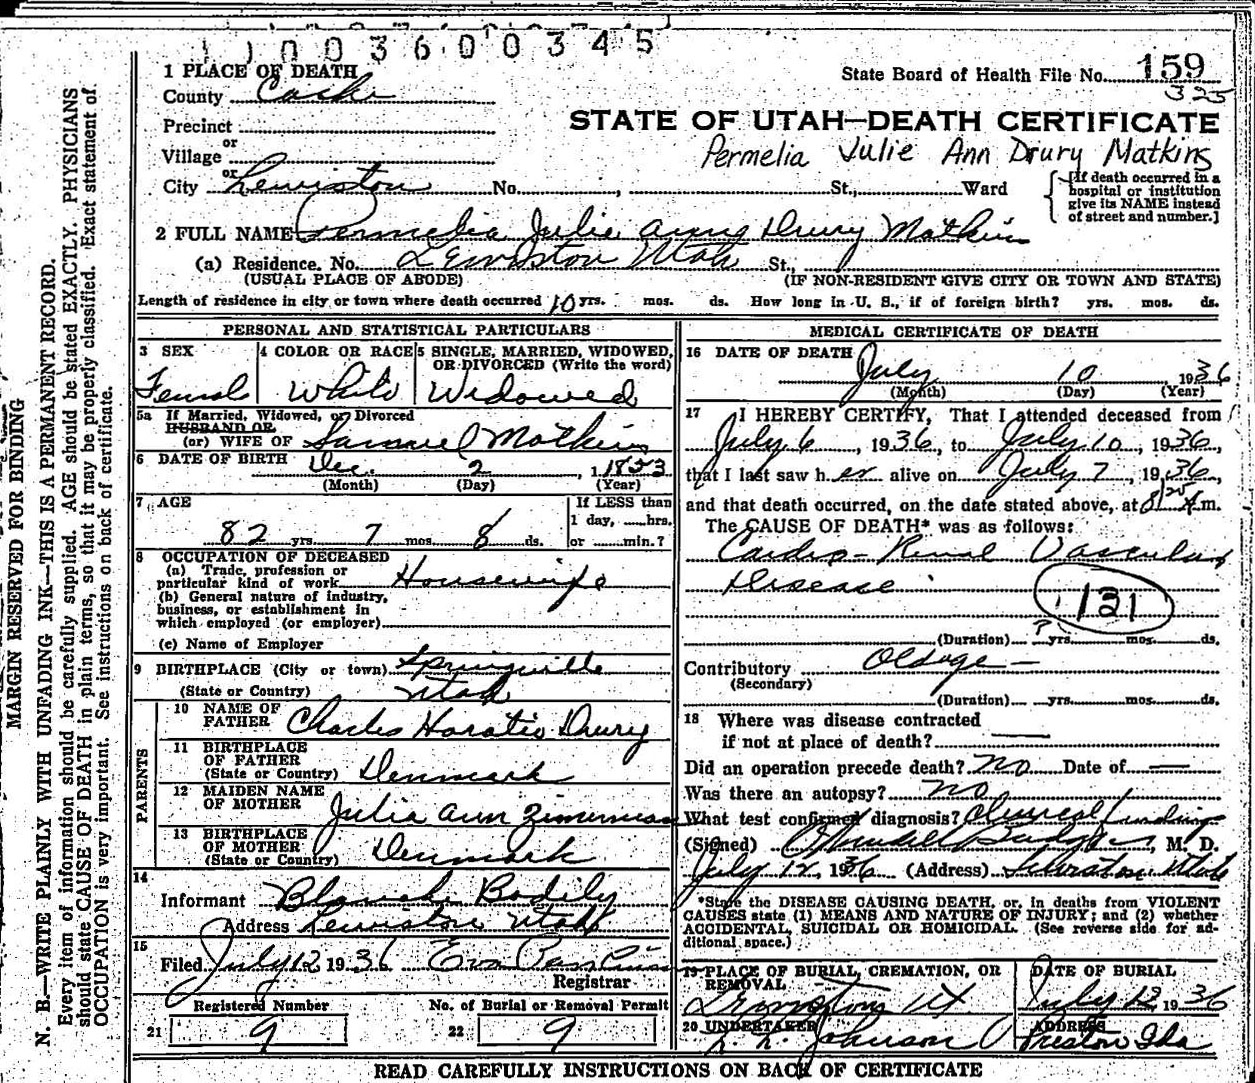 1003600345
1 PLACE OF DEATH
State Board of Health File No. 159
325
County Cache
STATE OF UTAH—DEATH CERTIFICATE
Precinct
Permelia Julie Ann Drury Matkins
or
Village
or
City Lewiston No. , St., Ward
[If death occurred in a
hospital or institution
give its NAME instead
of street and number.]
2 FULL NAME Permelia Julie Ann Drury Matkins
(a) Residence. No. Lewiston Utah St.,
(USUAL PLACE OF ABODE) (IF NON-RESIDENT GIVE CITY OR TOWN AND STATE)
Length of residence in city or town where death occurred 10 yrs. mos. ds. How long in U. S., if of foreign birth? yrs. mos. ds.
PERSONAL AND STATISTICAL PARTICULARS
3 SEX 4 COLOR OR RACE 5 SINGLE, MARRIED, WIDOWED,
OR DIVORCED (Write the word)
Female White Widowed
5a If Married, Widowed, or Divorced
HUSBAND OF
(or) WIFE OF Samuel Matkins
6 DATE OF BIRTH Dec. 2, 1853
(Month) (Day) (Year)
7 AGE If LESS than
1 day, hrs.
82 yrs. 7 mos. 8 ds. or min.?
8 OCCUPATION OF DECEASED
(a) Trade, profession or
particular kind of work Housewife
(b) General nature of industry,
business, or establishment in
which employed (or employer)
(c) Name of Employer
9 BIRTHPLACE (City or town) Springville
(State or Country) Utah
PARENTS
10 NAME OF
FATHER Charles Horatio Drury
11 BIRTHPLACE
OF FATHER
(State or Country) Denmark
12 MAIDEN NAME
OF MOTHER Julia Ann Zimerman
13 BIRTHPLACE
OF MOTHER
(State or Country) Denmark
14
Informant Blanch Bodily
Address Lewiston Utah
15
Filed July 12 1936 Eva
Registrar
Registered Number No. of Burial or Removal Permit
21 9 22 9
MEDICAL CERTIFICATE OF DEATH
16 DATE OF DEATH July 10 1936
(Month) (Day) (Year)
17 I HEREBY CERTIFY, That I attended deceased from
July 6, 1936, to July 10, 1936,
that I last saw her alive on July 7, 1936,
and that death occurred, on the date stated above, at 8:25 A m.
The CAUSE OF DEATH* was as follows:
Cardio-Renal Vascular
Disease
131
(Duration) ? yrs. mos. ds.
Contributory Old age —
(Secondary)
(Duration) yrs. mos. ds.
18 Where was disease contracted
if not at place of death? —
Did an operation precede death? no Date of —
Was there an autopsy? no
What test confirmed diagnosis? Clinical findings
(Signed) M. D.
July 12, 1936 (Address) Lewiston Utah
*State the DISEASE CAUSING DEATH, or, in deaths from VIOLENT
CAUSES state (1) MEANS AND NATURE OF INJURY; and (2) whether
ACCIDENTAL, SUICIDAL OR HOMICIDAL. (See reverse side for ad-
ditional space.)
19 PLACE OF BURIAL, CREMATION, OR DATE OF BURIAL
REMOVAL
Lewiston Ut July 12 1936
20 UNDERTAKER ADDRESS
Johnson Preston Ida
READ CAREFULLY INSTRUCTIONS ON BACK OF CERTIFICATE
MARGIN RESERVED FOR BINDING
N. B.—WRITE PLAINLY WITH UNFADING INK—THIS IS A PERMANENT RECORD.
Every item of information should be carefully supplied. AGE should be stated EXACTLY. PHYSICIANS
should state CAUSE OF DEATH in plain terms, so that it may be properly classified. Exact statement of
OCCUPATION is very important. See instructions on back of certificate.